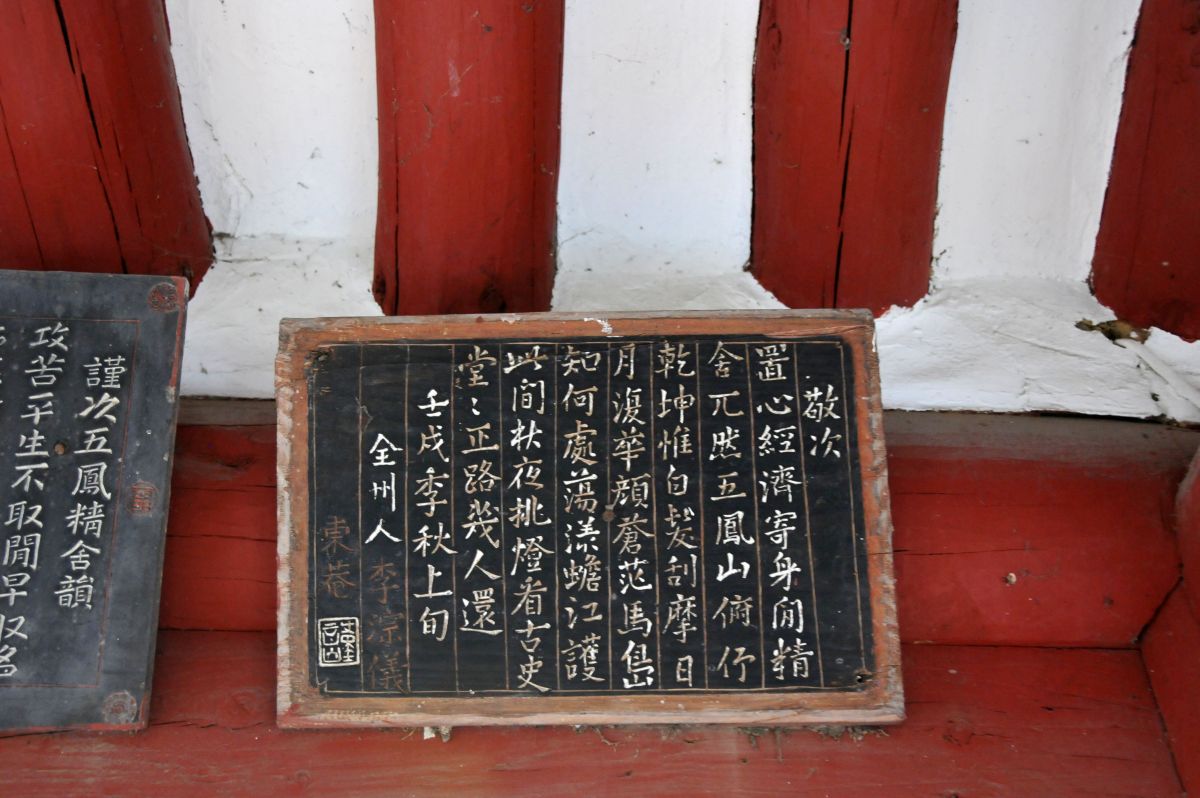 敬次
置心經濟寄身閒精
舍兀然五鳳山俯仰
乾坤惟白髮刮摩日
月復華顔蒼茫馬島
知何處蕩漾蟾江護
此間秋夜挑燈看古史
堂〻正路幾人還
壬戌季秋上旬
全州人 李淙儀
東菴
謹次五鳳精舍韻
攻苦平生不取閒早収名